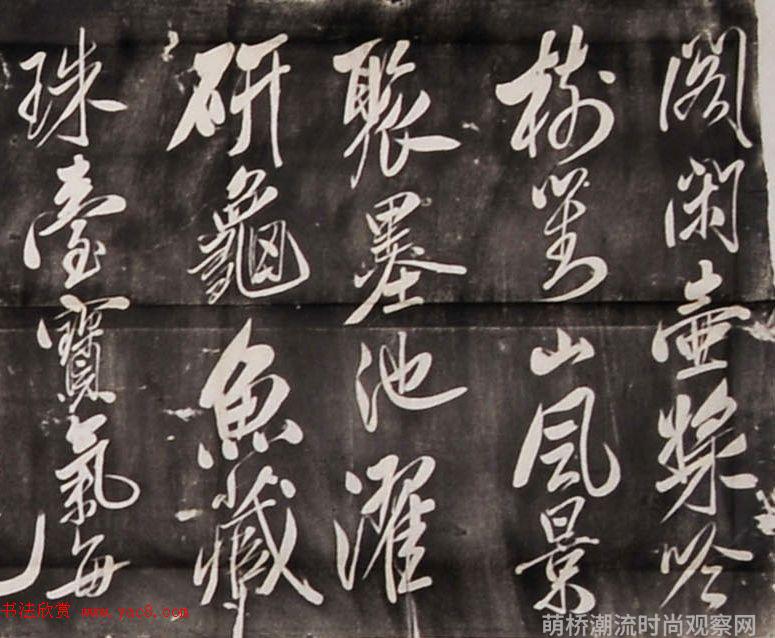 閣閑壺吟
樹對山風景
聚墨池濯
研龜魚藏
珠臺寶氣每
书法欣赏 www.yac8.com
萌桥潮流时尚观察网